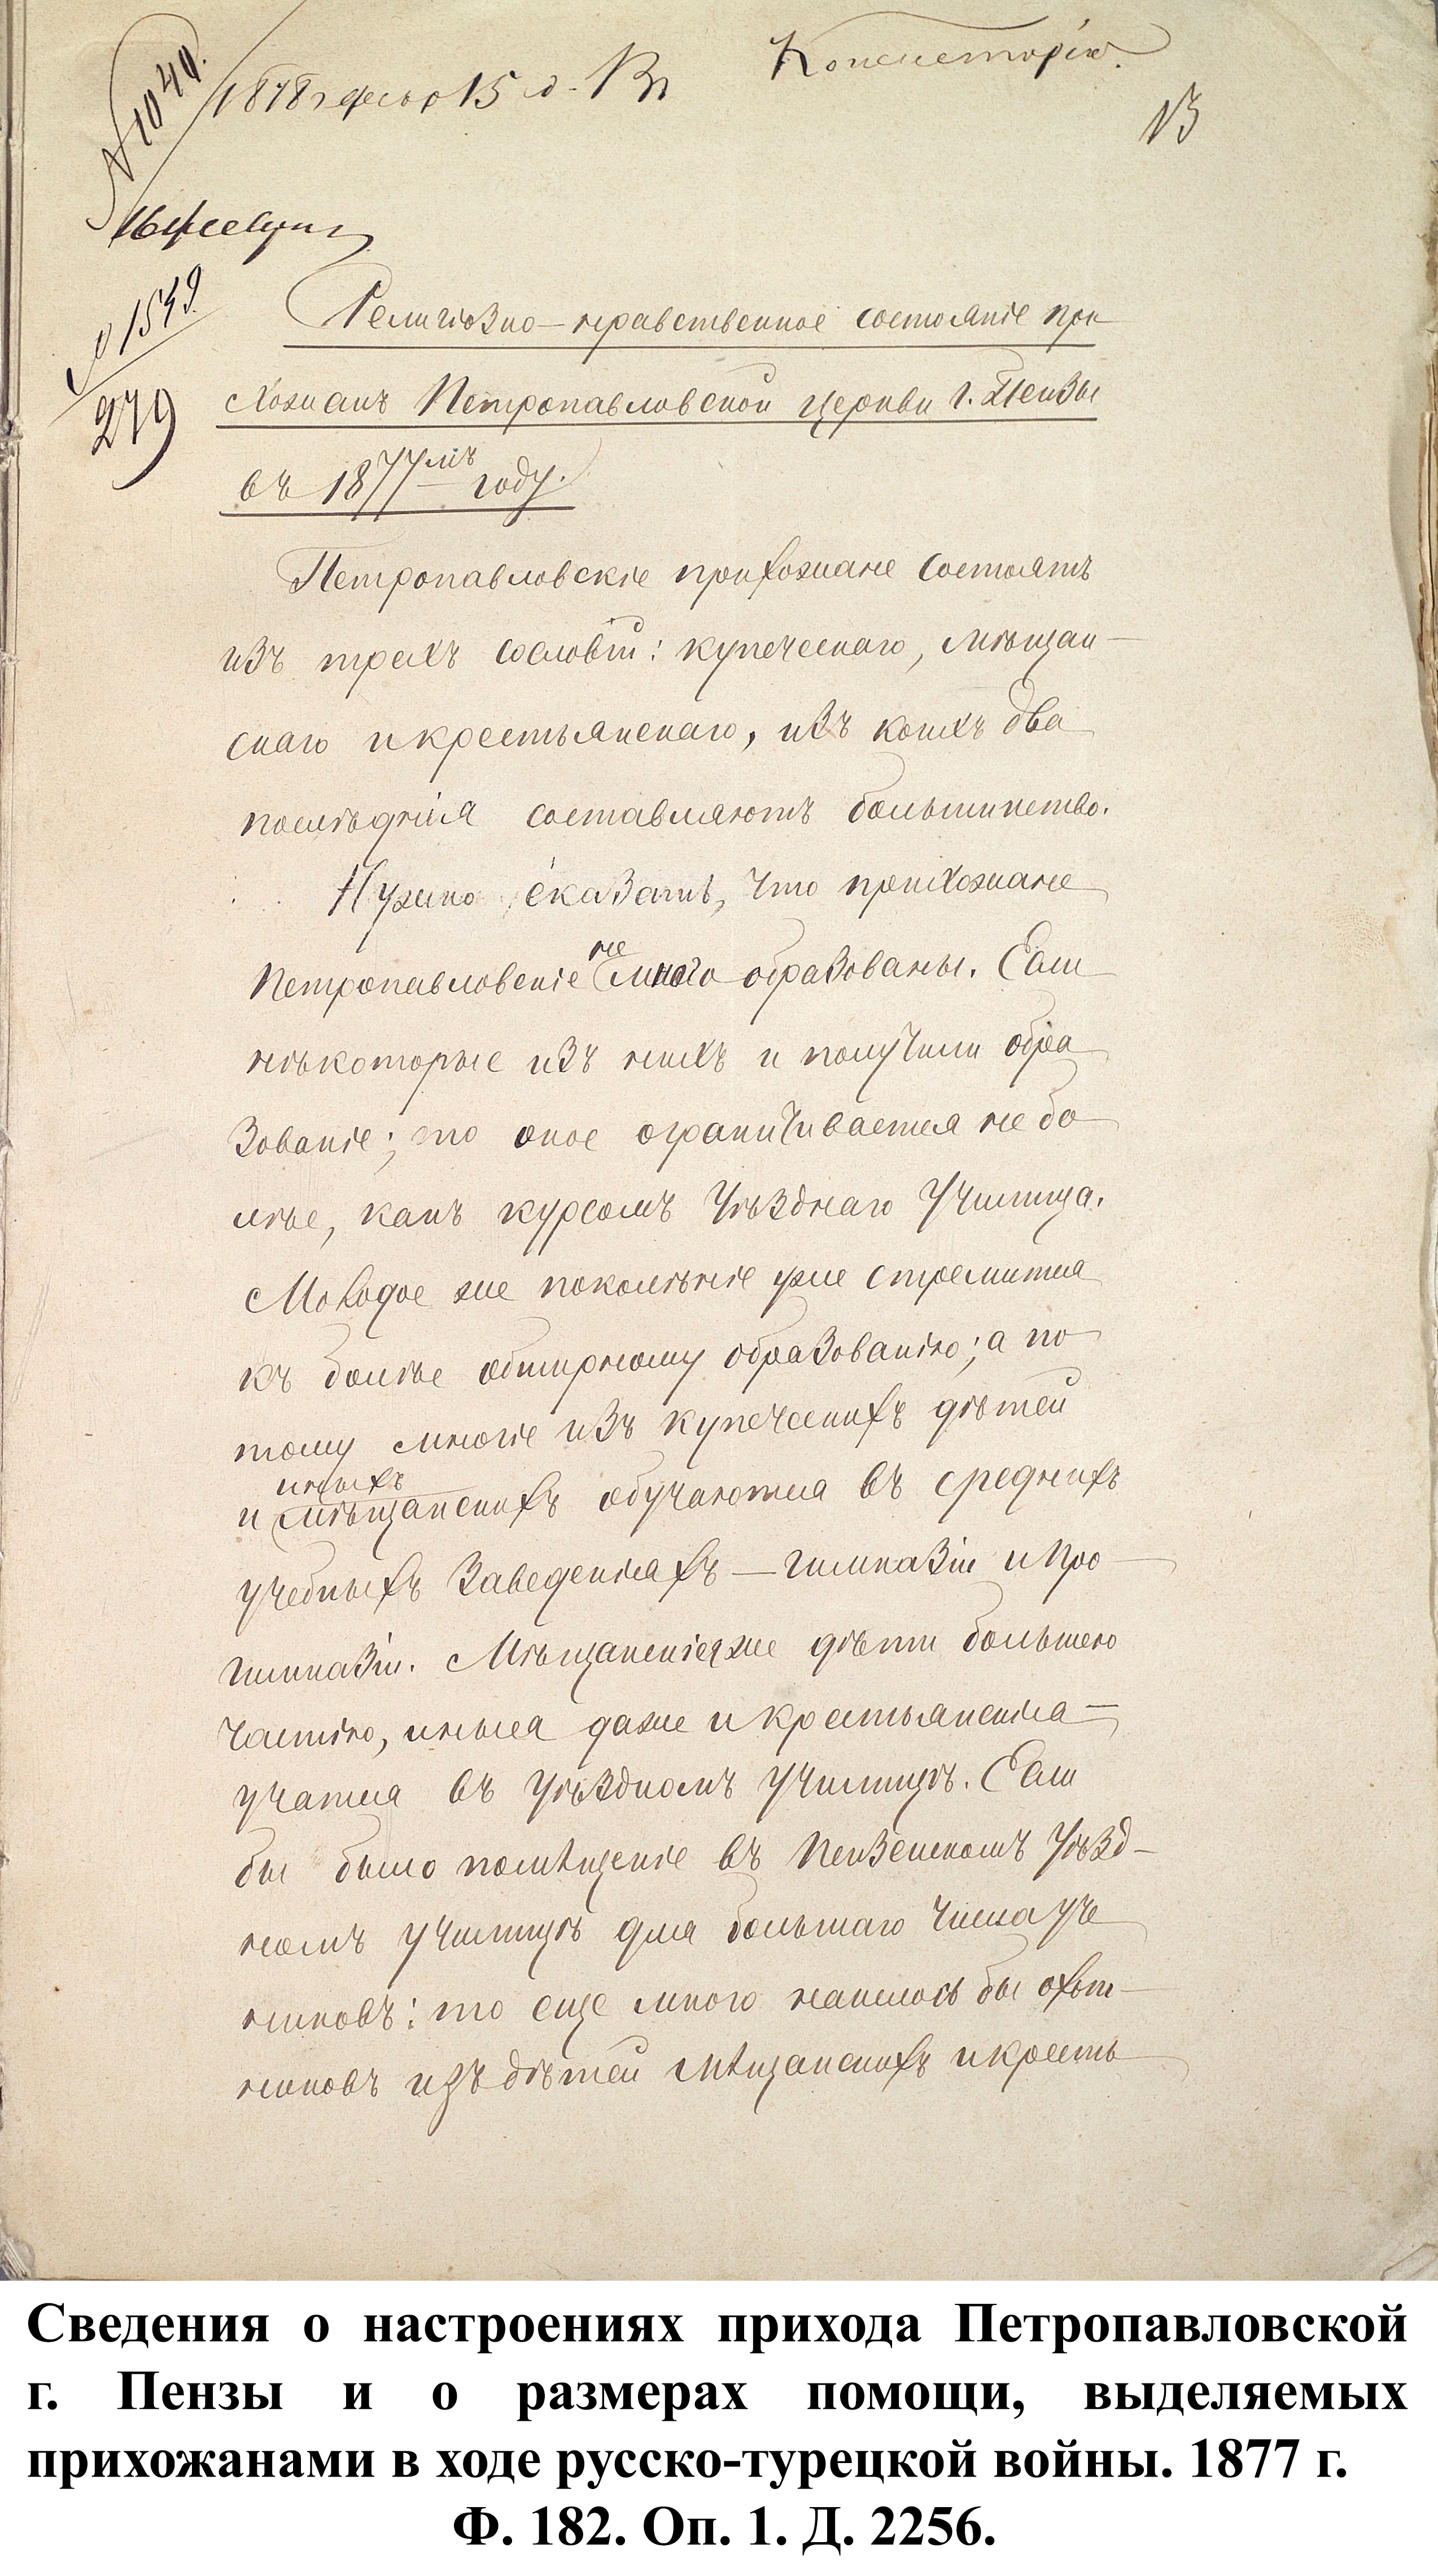 № 1040.
1878 г. февр 15 д. Вп
Консисторію.
13
16 февраля
№ 1549
279
Религіозно-нравственное состояніе при
хожанъ Петропавловской церкви г. Пензы
въ 1877мъ году.
Петропавловскіе прихожане состоятъ
изъ трехъ сословій: купеческаго, мѣщан-
скаго и крестьянскаго, изъ коихъ два
послѣднія составляютъ большинство.
Нужно сказать, что прихожане
Петропавловскіе не много образованы. Если
нѣкоторые изъ нихъ и получили обра
зованіе; то оное ограничивается не бо
лѣе, какъ курсомъ Уѣзднаго Училища.
Молодое же поколѣніе уже стремится
къ болѣе обширному образованію; а по
тому многіе изъ купеческихъ дѣтей
и иныхъ мѣщанскихъ обучаются въ среднихъ
учебныхъ заведеніяхъ — гимназіи и про
гимназіи. Мѣщанскіе же дѣти большею
частію, иныя даже и крестьянскія —
учатся въ Уѣздномъ Училищѣ. Если
бы было помѣщеніе въ Пензенскомъ Уѣзд-
номъ Училищѣ для большаго числа уче
никовъ: то еще много нашлось бы охот-
никовъ изъ дѣтей мѣщанскихъ и кресть
Сведения о настроениях прихода Петропавловской
г. Пензы и о размерах помощи, выделяемых
прихожанами в ходе русско-турецкой войны. 1877 г.
Ф. 182. Оп. 1. Д. 2256.